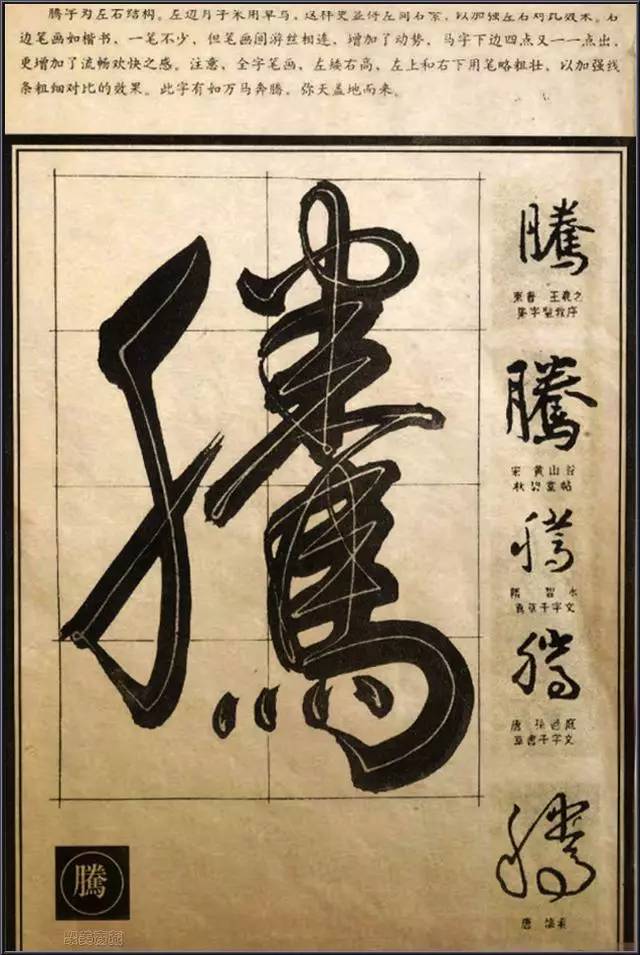 腾字为左右结构。左边月字采用草写，这样更显得左简右繁，以加强左右对比效果。右
边笔画如楷书、一笔不少，但笔画间游丝相连，增加了动势，马字下边四点又一一点出，
更增加了流畅欢快之感。注意，全字笔画，左矮右高，左上和右下用笔略粗壮，以加强线
条粗细对比的效果。此字有如万马奔腾，弥天盖地而来。
騰
騰
东晋 王羲之
集字圣教序
騰
宋 黄山谷
騰
隋 智永
真草千字文
騰
唐
草书千字文
騰
唐 怀素
騰